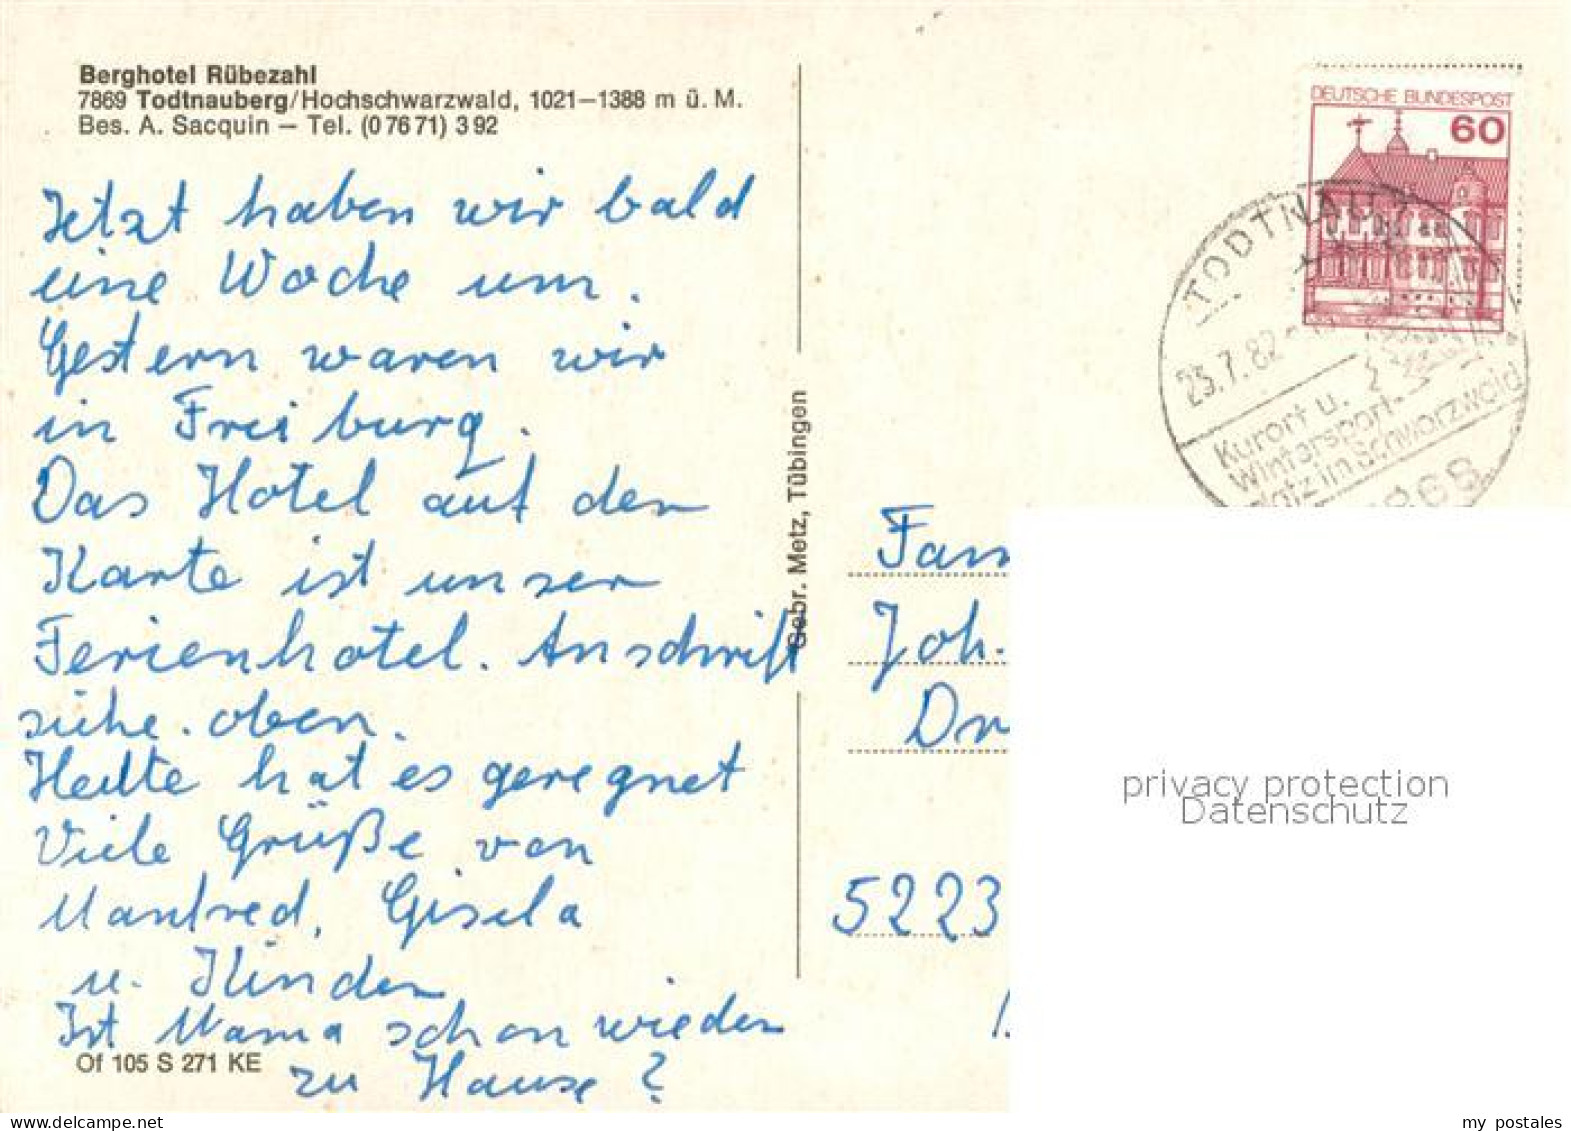 Berghotel Rübezahl
7869 Todtnauberg/Hochschwarzwald, 1021–1388 m ü. M.
Bes. A. Sacquin – Tel. (07671) 392
Jetzt haben wir bald
eine Woche um.
Gestern waren wir
in Freiburg.
Das Hotel auf der
Karte ist unser
Ferienhotel. Anschrift
siehe oben.
Heute hat es geregnet
Viele Grüße von
Manfred, Gisela
u. Kinder
Ist Mama schon wieder
zu Hause?
Of 105 S 271 KE
Gebr. Metz, Tübingen
DEUTSCHE BUNDESPOST
60
TODTNAU
23.7.82
Kurort u.
Wintersport-
platz im Schwarzwald
Fam
Joh.
5223
privacy protection
Datenschutz
my postales
www.delcampe.net